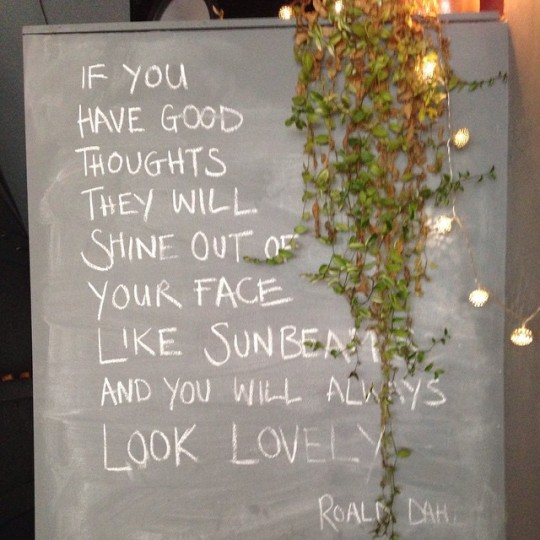 IF YOU
HAVE GOOD
THOUGHTS
THEY WILL
SHINE OUT OF
YOUR FACE
LIKE SUNBEAMS
AND YOU WILL ALWAYS
LOOK LOVELY
ROALD DAHL